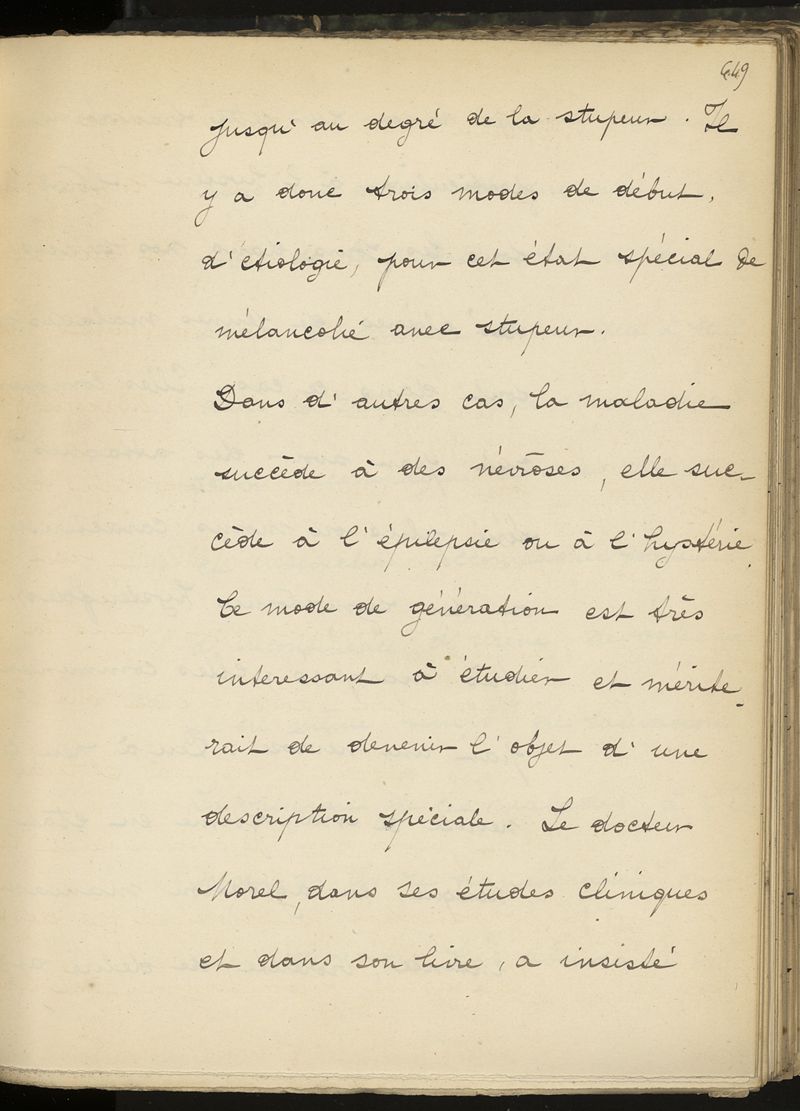 449
jusqu'au degré de la stupeur. Il
y a donc trois modes de début,
d'étiologie, pour cet état spécial de
mélancolie avec stupeur.
Dans d'autres cas, la maladie
succède à des névroses, elle suc-
cède à l'épilepsie ou à l'hystérie.
Ce mode de génération est très
interessant à étudier et mérite-
rait de devenir l'objet d'une
description spéciale. Le docteur
Morel, dans ses études cliniques
et dans son livre, a insisté